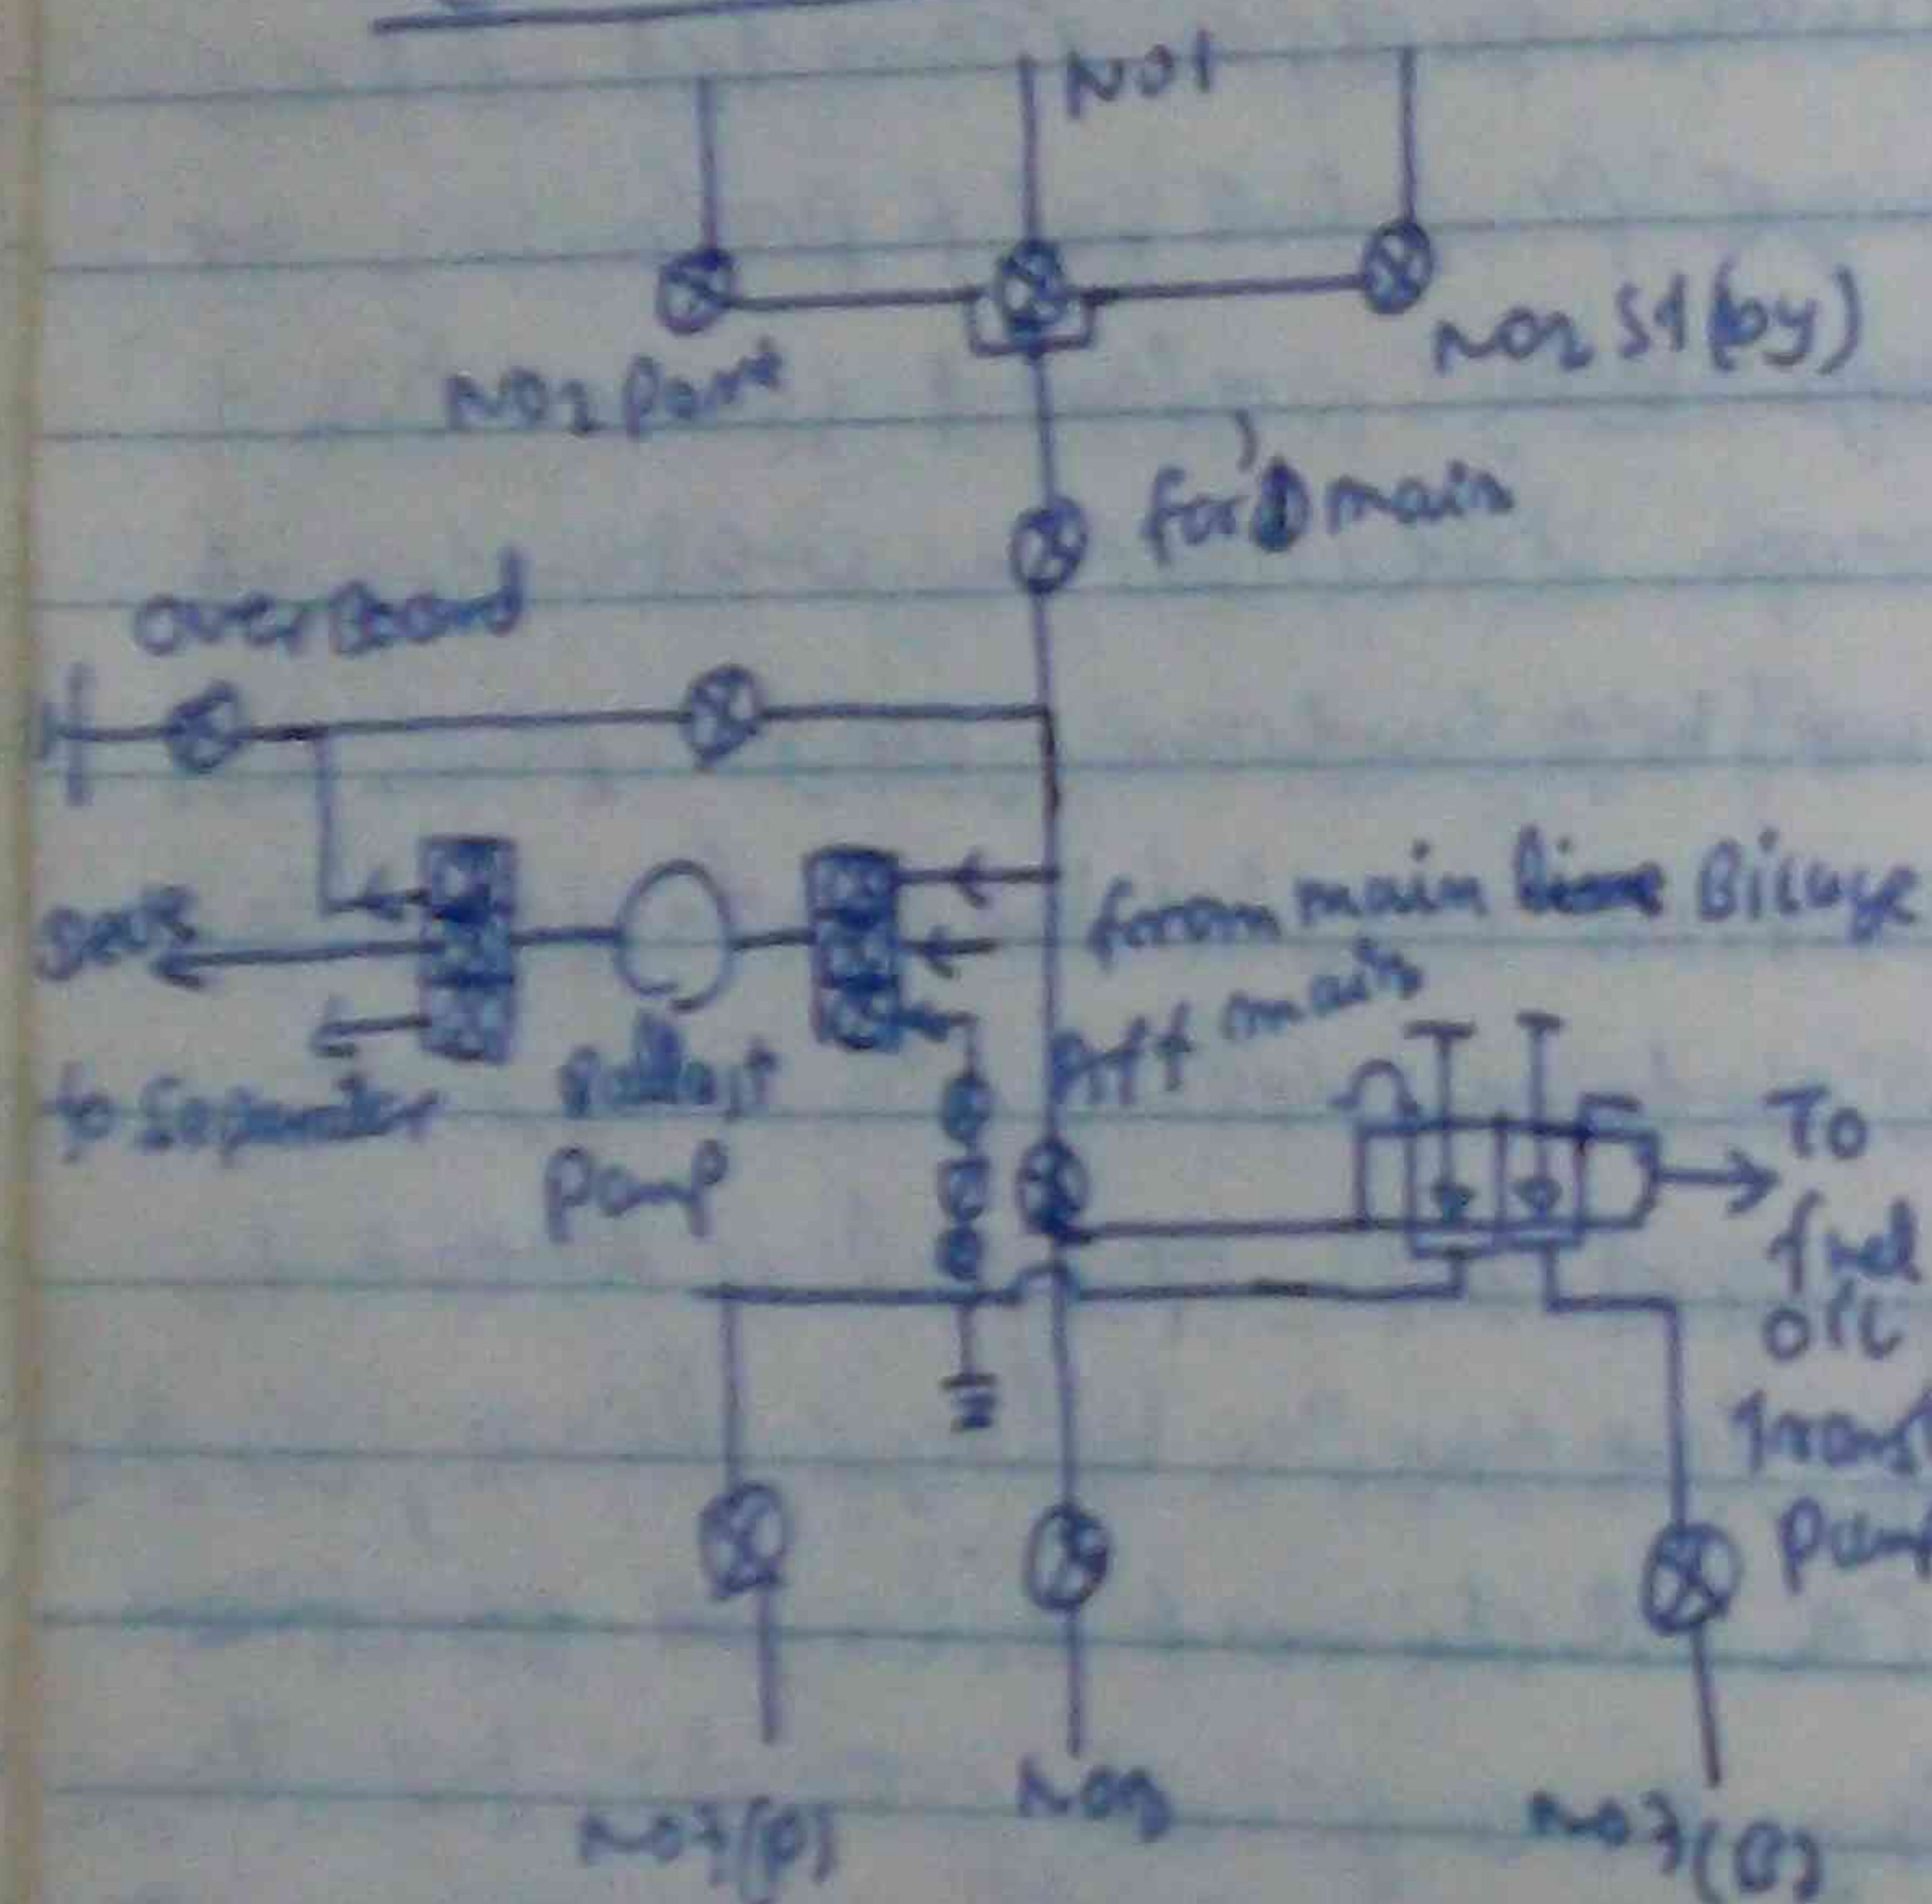 NO1
NO2 Port
NO2 St(by)
for'd main
overBoard
from main Biluge
Aft main
to Separator
Ballast
Pump
To
fuel
oil
Transf
Pump
NO3(P)
NO3